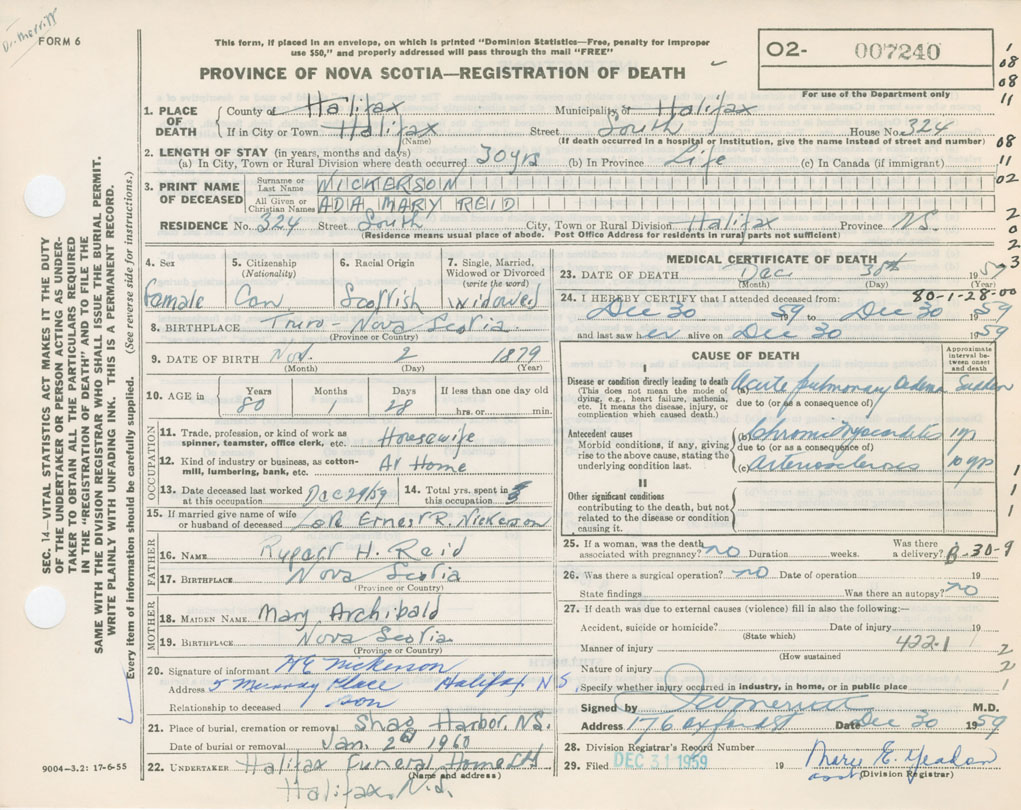 Dr. Merritt
FORM 6
This form, if placed in an envelope, on which is printed "Dominion Statistics—Free, penalty for improper
use $50," and properly addressed will pass through the mail "FREE"
O2- 007240
For use of the Department only
PROVINCE OF NOVA SCOTIA—REGISTRATION OF DEATH
1. PLACE OF DEATH
County of Halifax Municipality of Halifax
If in City or Town Halifax Street South House No. 324
(Name) (If death occurred in a hospital or institution, give the name instead of street and number)
2. LENGTH OF STAY (in years, months and days)
(a) In City, Town or Rural Division where death occurred 30 yrs (b) In Province Life (c) In Canada (if immigrant)
3. PRINT NAME OF DECEASED
Surname or Last Name NICKERSON
All Given or Christian Names ADA MARY REID
RESIDENCE No. 324 Street South City, Town or Rural Division Halifax Province N.S.
(Residence means usual place of abode. Post Office Address for residents in rural parts not sufficient)
4. Sex Female
5. Citizenship (Nationality) Can
6. Racial Origin Scottish
7. Single, Married, Widowed or Divorced (write the word) Widowed
8. BIRTHPLACE Truro - Nova Scotia
(Province or Country)
9. DATE OF BIRTH Nov. 2 1879
(Month) (Day) (Year)
10. AGE in Years 80 Months 1 Days 28 If less than one day old hrs. or min.
OCCUPATION
11. Trade, profession, or kind of work as spinner, teamster, office clerk, etc. Housewife
12. Kind of industry or business, as cotton-mill, lumbering, bank, etc. At Home
13. Date deceased last worked at this occupation Dec 29/59
14. Total yrs. spent in this occupation
15. If married give name of wife or husband of deceased Late Ernest R. Nickerson
FATHER
16. NAME Rupert H. Reid
17. BIRTHPLACE Nova Scotia
(Province or Country)
MOTHER
18. MAIDEN NAME Mary Archibald
19. BIRTHPLACE Nova Scotia
(Province or Country)
20. Signature of informant HE Nickerson
Address 5 Murray Place Halifax N S
Relationship to deceased son
21. Place of burial, cremation or removal Shag Harbor, N.S.
Date of burial or removal Jan. 2nd 1960
22. UNDERTAKER Halifax Funeral Home Ltd
(Name and address)
Halifax, N.S.
9004-3.2: 17-6-55
MEDICAL CERTIFICATE OF DEATH
23. DATE OF DEATH Dec 30th 1959
(Month) (Day) (Year)
80-1-28-00
24. I HEREBY CERTIFY that I attended deceased from:
Dec 30 59 to Dec 30 1959
and last saw her alive on Dec 30 1959
CAUSE OF DEATH
Approximate interval between onset and death
I
Disease or condition directly leading to death
(This does not mean the mode of dying, e.g., heart failure, asthenia, etc. It means the disease, injury, or complication which caused death.)
(a) Acute pulmonary Oedema Sudden
due to (or as a consequence of)
Antecedent causes
Morbid conditions, if any, giving rise to the above cause, stating the underlying condition last.
(b) Chronic Myocarditis
due to (or as a consequence of)
(c) arteriosclerosis 10 yrs
II
Other significant conditions
contributing to the death, but not related to the disease or condition causing it.
25. If a woman, was the death associated with pregnancy? no Duration weeks. Was there a delivery?
B-30-9
26. Was there a surgical operation? no Date of operation 19
State findings Was there an autopsy? no
27. If death was due to external causes (violence) fill in also the following:—
Accident, suicide or homicide? Date of injury 19
(State which)
Manner of injury 422.1
(How sustained)
Nature of injury
Specify whether injury occurred in industry, in home, or in public place
Signed by M.D.
Address 176 Oxford St Date Dec 30 1959
28. Division Registrar's Record Number
29. Filed DEC 31 1959 19 Mary E. Yeadon
asst (Division Registrar)
SEC. 14—VITAL STATISTICS ACT MAKES IT THE DUTY
OF THE UNDERTAKER OR PERSON ACTING AS UNDER-
TAKER TO OBTAIN ALL THE PARTICULARS REQUIRED
IN THE "REGISTRATION OF DEATH" AND TO FILE THE
SAME WITH THE DIVISION REGISTRAR WHO SHALL ISSUE THE BURIAL PERMIT.
WRITE PLAINLY WITH UNFADING INK. THIS IS A PERMANENT RECORD.
Every item of information should be carefully supplied. (See reverse side for instructions.)
1
08
08
11
08
11
02
2
0
2
3
1
1
1
2
2
1